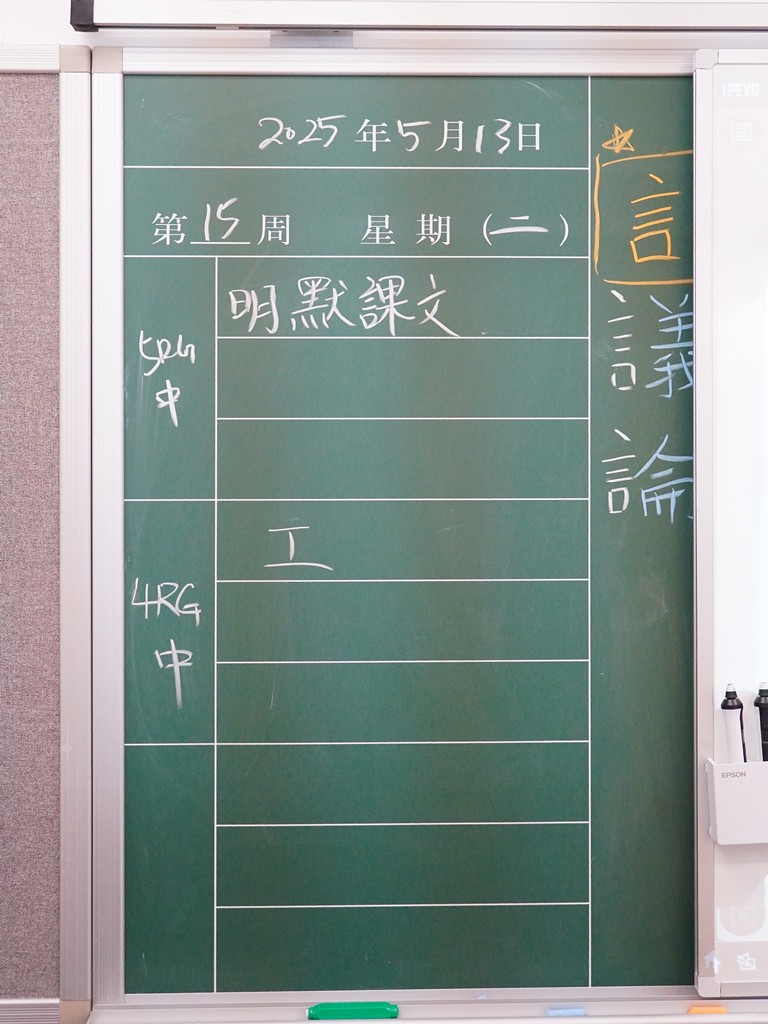 2025年5月13日
第15周 星期(二)
5RG
中
明默課文
4RG
中
工
言
議
論
IPEVO
EPSON